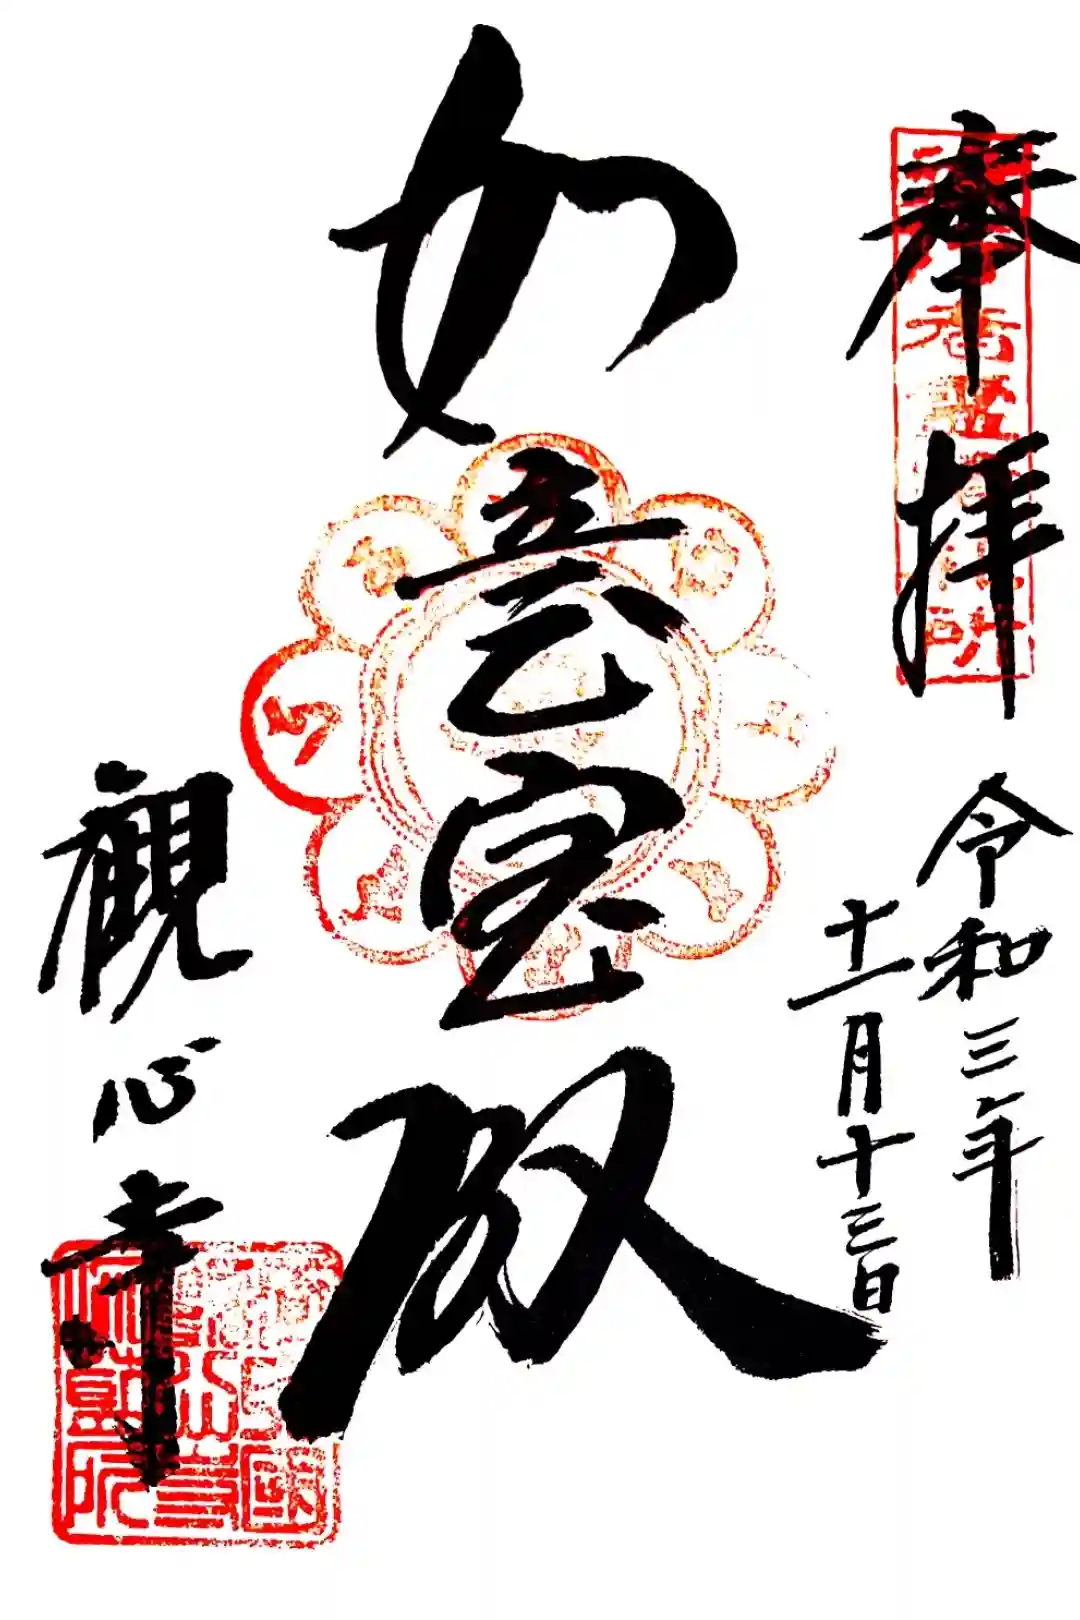 奉拝
令和三年
十一月十三日
如意宝殿
觀心寺